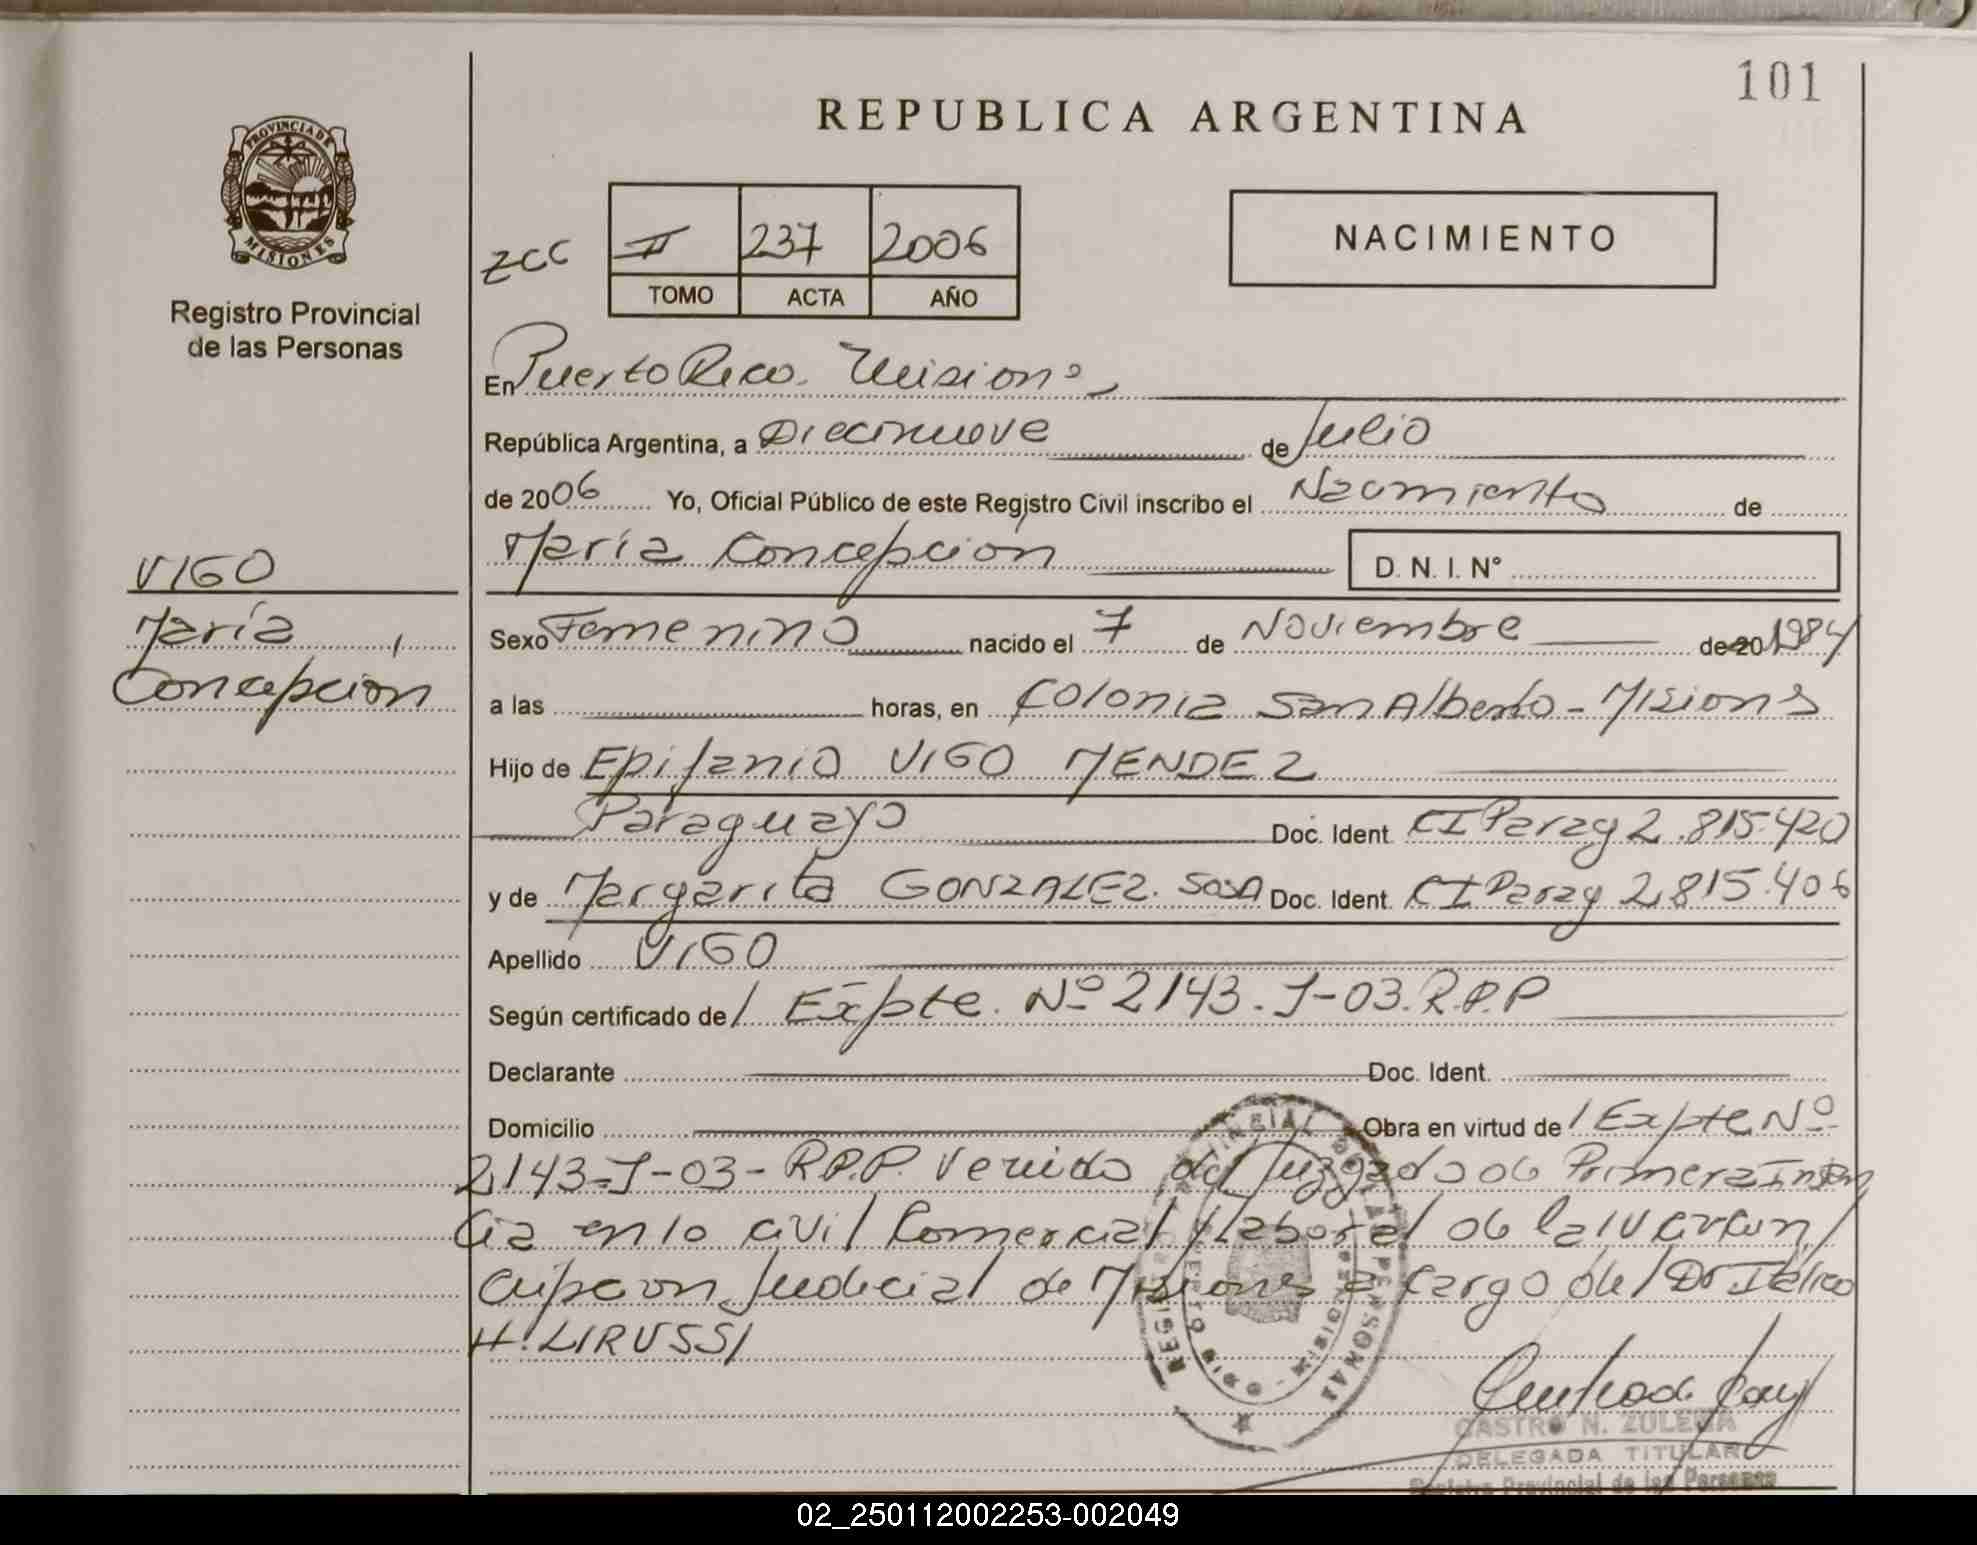 101
REPUBLICA ARGENTINA
PROVINCIA DE
MISIONES
Registro Provincial
de las Personas
ZCC
II 237 2006
TOMO ACTA AÑO
NACIMIENTO
En Puerto Rico. Misiones
República Argentina, a Diecinueve de Julio
de 2006 Yo, Oficial Público de este Registro Civil inscribo el Nacimiento de
María Concepción D. N. I. Nº
VIGO
María
Concepción
Sexo Femenino nacido el 7 de Noviembre de 20 1984
a las horas, en Colonia San Alberto - Misiones
Hijo de Epifanio VIGO MENDEZ
Paraguayo Doc. Ident. CI Parag 2.815.420
y de Margarita GONZALEZ. SOSA Doc. Ident. CI Parag 2.815.406
Apellido VIGO
Según certificado de / Expte. Nº 2143-J-03. R.P.P
Declarante Doc. Ident.
Domicilio Obra en virtud de / Expte Nº
2143-J-03- R.P.P. Venido del Juzgado de Primera Instan
cia en lo Civil Comercial y Laboral de la IV Circun
cripcion Judicial de Misiones a cargo del Dr Italico
H. LIRUSSI
CASTRO N. ZULEMA
DELEGADA TITULAR
Registro Provincial de las Personas
02_250112002253-002049